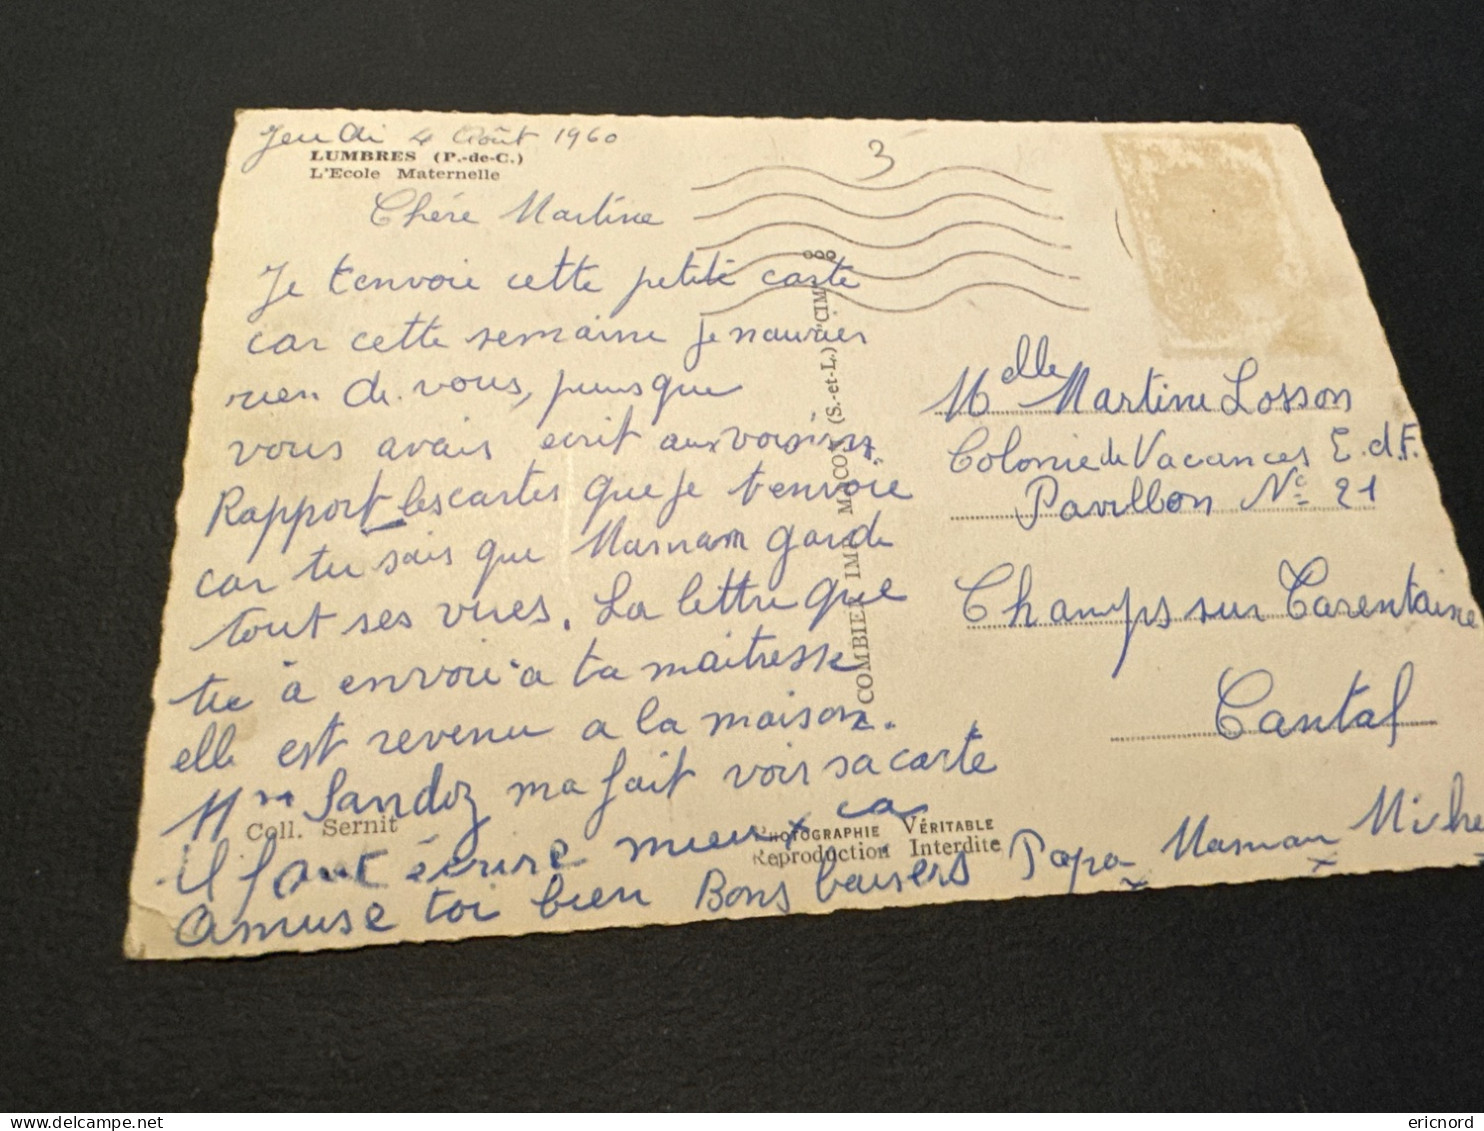 Jeudi 4 Août 1960
LUMBRES (P.-de-C.)
L'Ecole Maternelle
3
Chére Martine
Je t'envoie cette petite carte
car cette semaine je naurier
rien de vous, puisque
vous avais ecrit aux voisins
Rapport les cartes que je t'envoie
car tu sais que Maman garde
tout ses vues. La lettre que
tu à envoie a ta maitresse
elle est revenu a la maison.
Mme Sandoz ma fait voir sa carte
il faut écrire mieux ca
Amuse toi bien Bons baisers Papa Maman Miche
Coll. Sernit
COMBIER IMP. MACON (S.-et-L.) "CIM"
PHOTOGRAPHIE VÉRITABLE
Reproduction Interdite
Melle Martine Losson
Colonie de Vacances E.d.F.
Pavillon No 21
Champs sur Tarentaine
Cantal
delcampe.net
ericnord